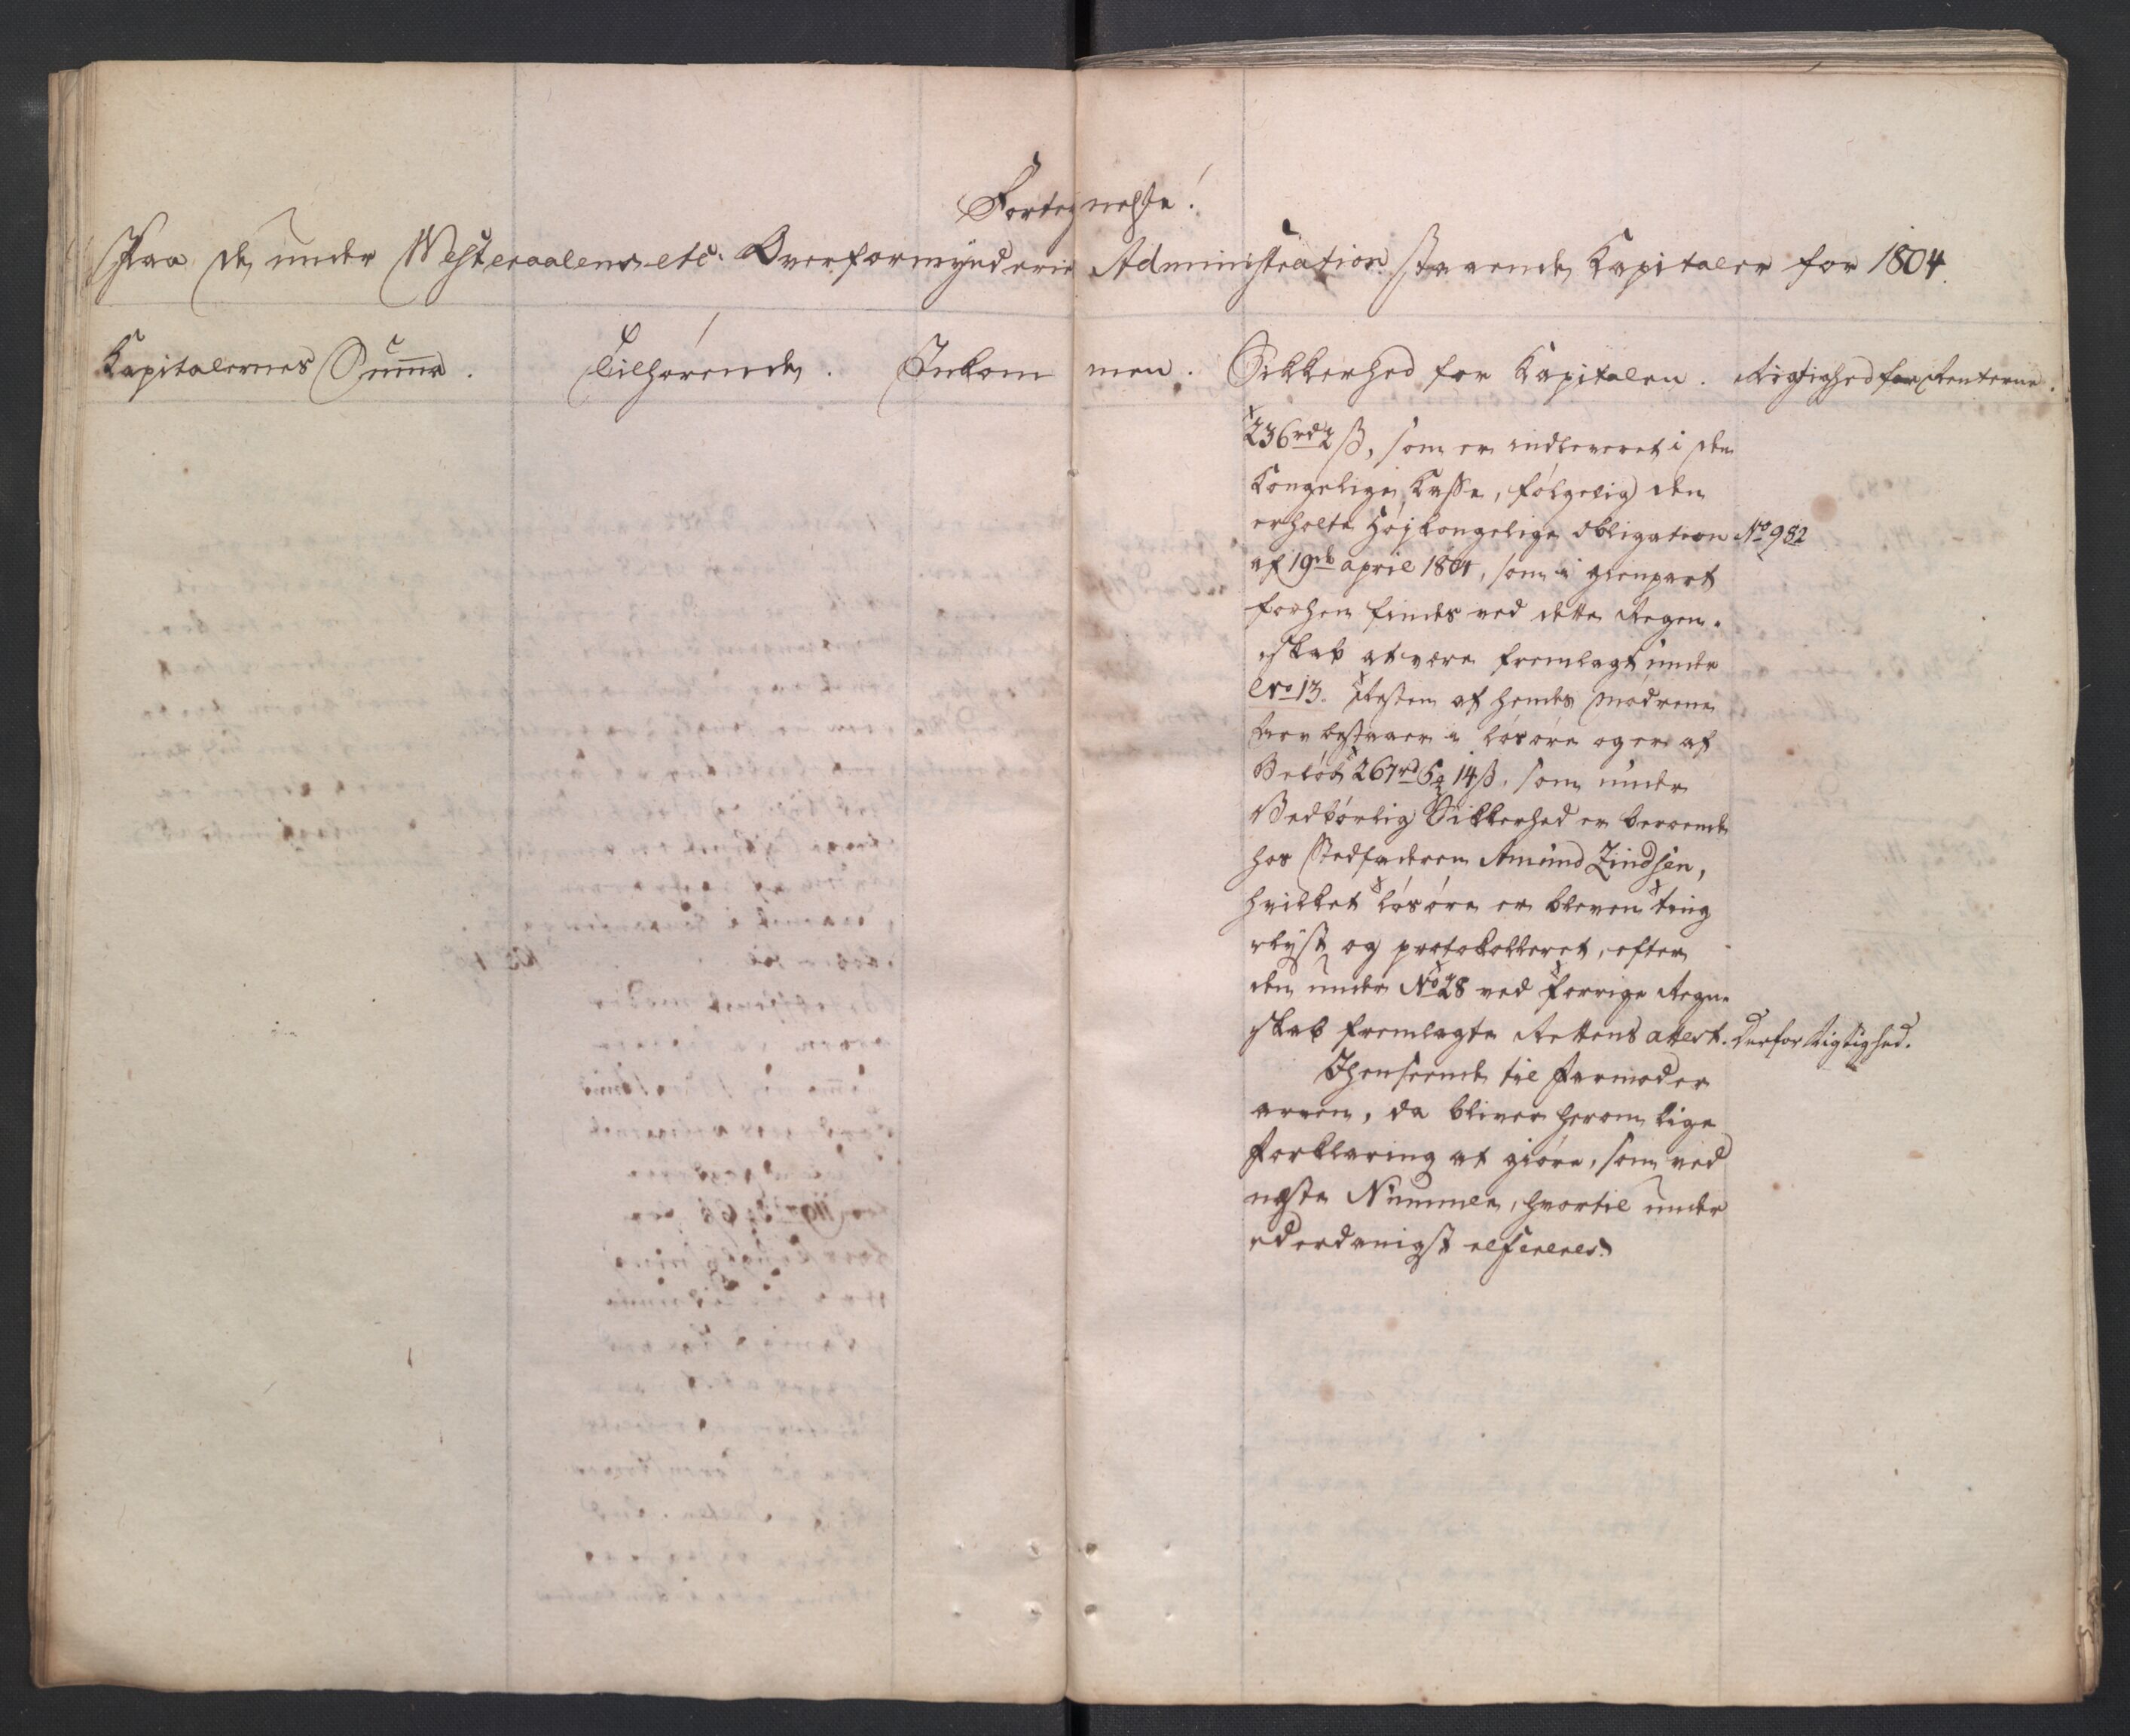 Fortegnelse!
Paa de under Westeraalens etc. Overformynderie Administration staaende Kapitaler for 1804.
Kapitalernes Summa. Tilhørende. Inkommen. Sikkerhed for Kapitalen. Rigtighed for Renterne.
236 rd 2 ß, som er indleveret i den
Kongelige Kasse, følgelig den
erholte Høj Kongelige Obligation No 982
af 19de april 1804, som i gienpart
forhen findes ved dette Regen-
skab at være fremlagt under
No 13. Resten af hendes Mødrene
Arv bestaaer i Løsøre og er af
Beløb 267 rd 5 14 ß. som under
Vedbørlig Sikkerhed er beroende
hos Stedfaderen Amund Zindsen,
hvilket Løsøre er bleven ting
lyst og protokolleret, efter
den under No 28 ved forrige Regn-
skab fremlagte Rettens attest. Derfor Rigtighed.
Ihenseende til Farmoder
arven, da bliver herom lige
Forklaring at giøre, som ved
neste Nummer, hvortil under
ederdanigst refereres.